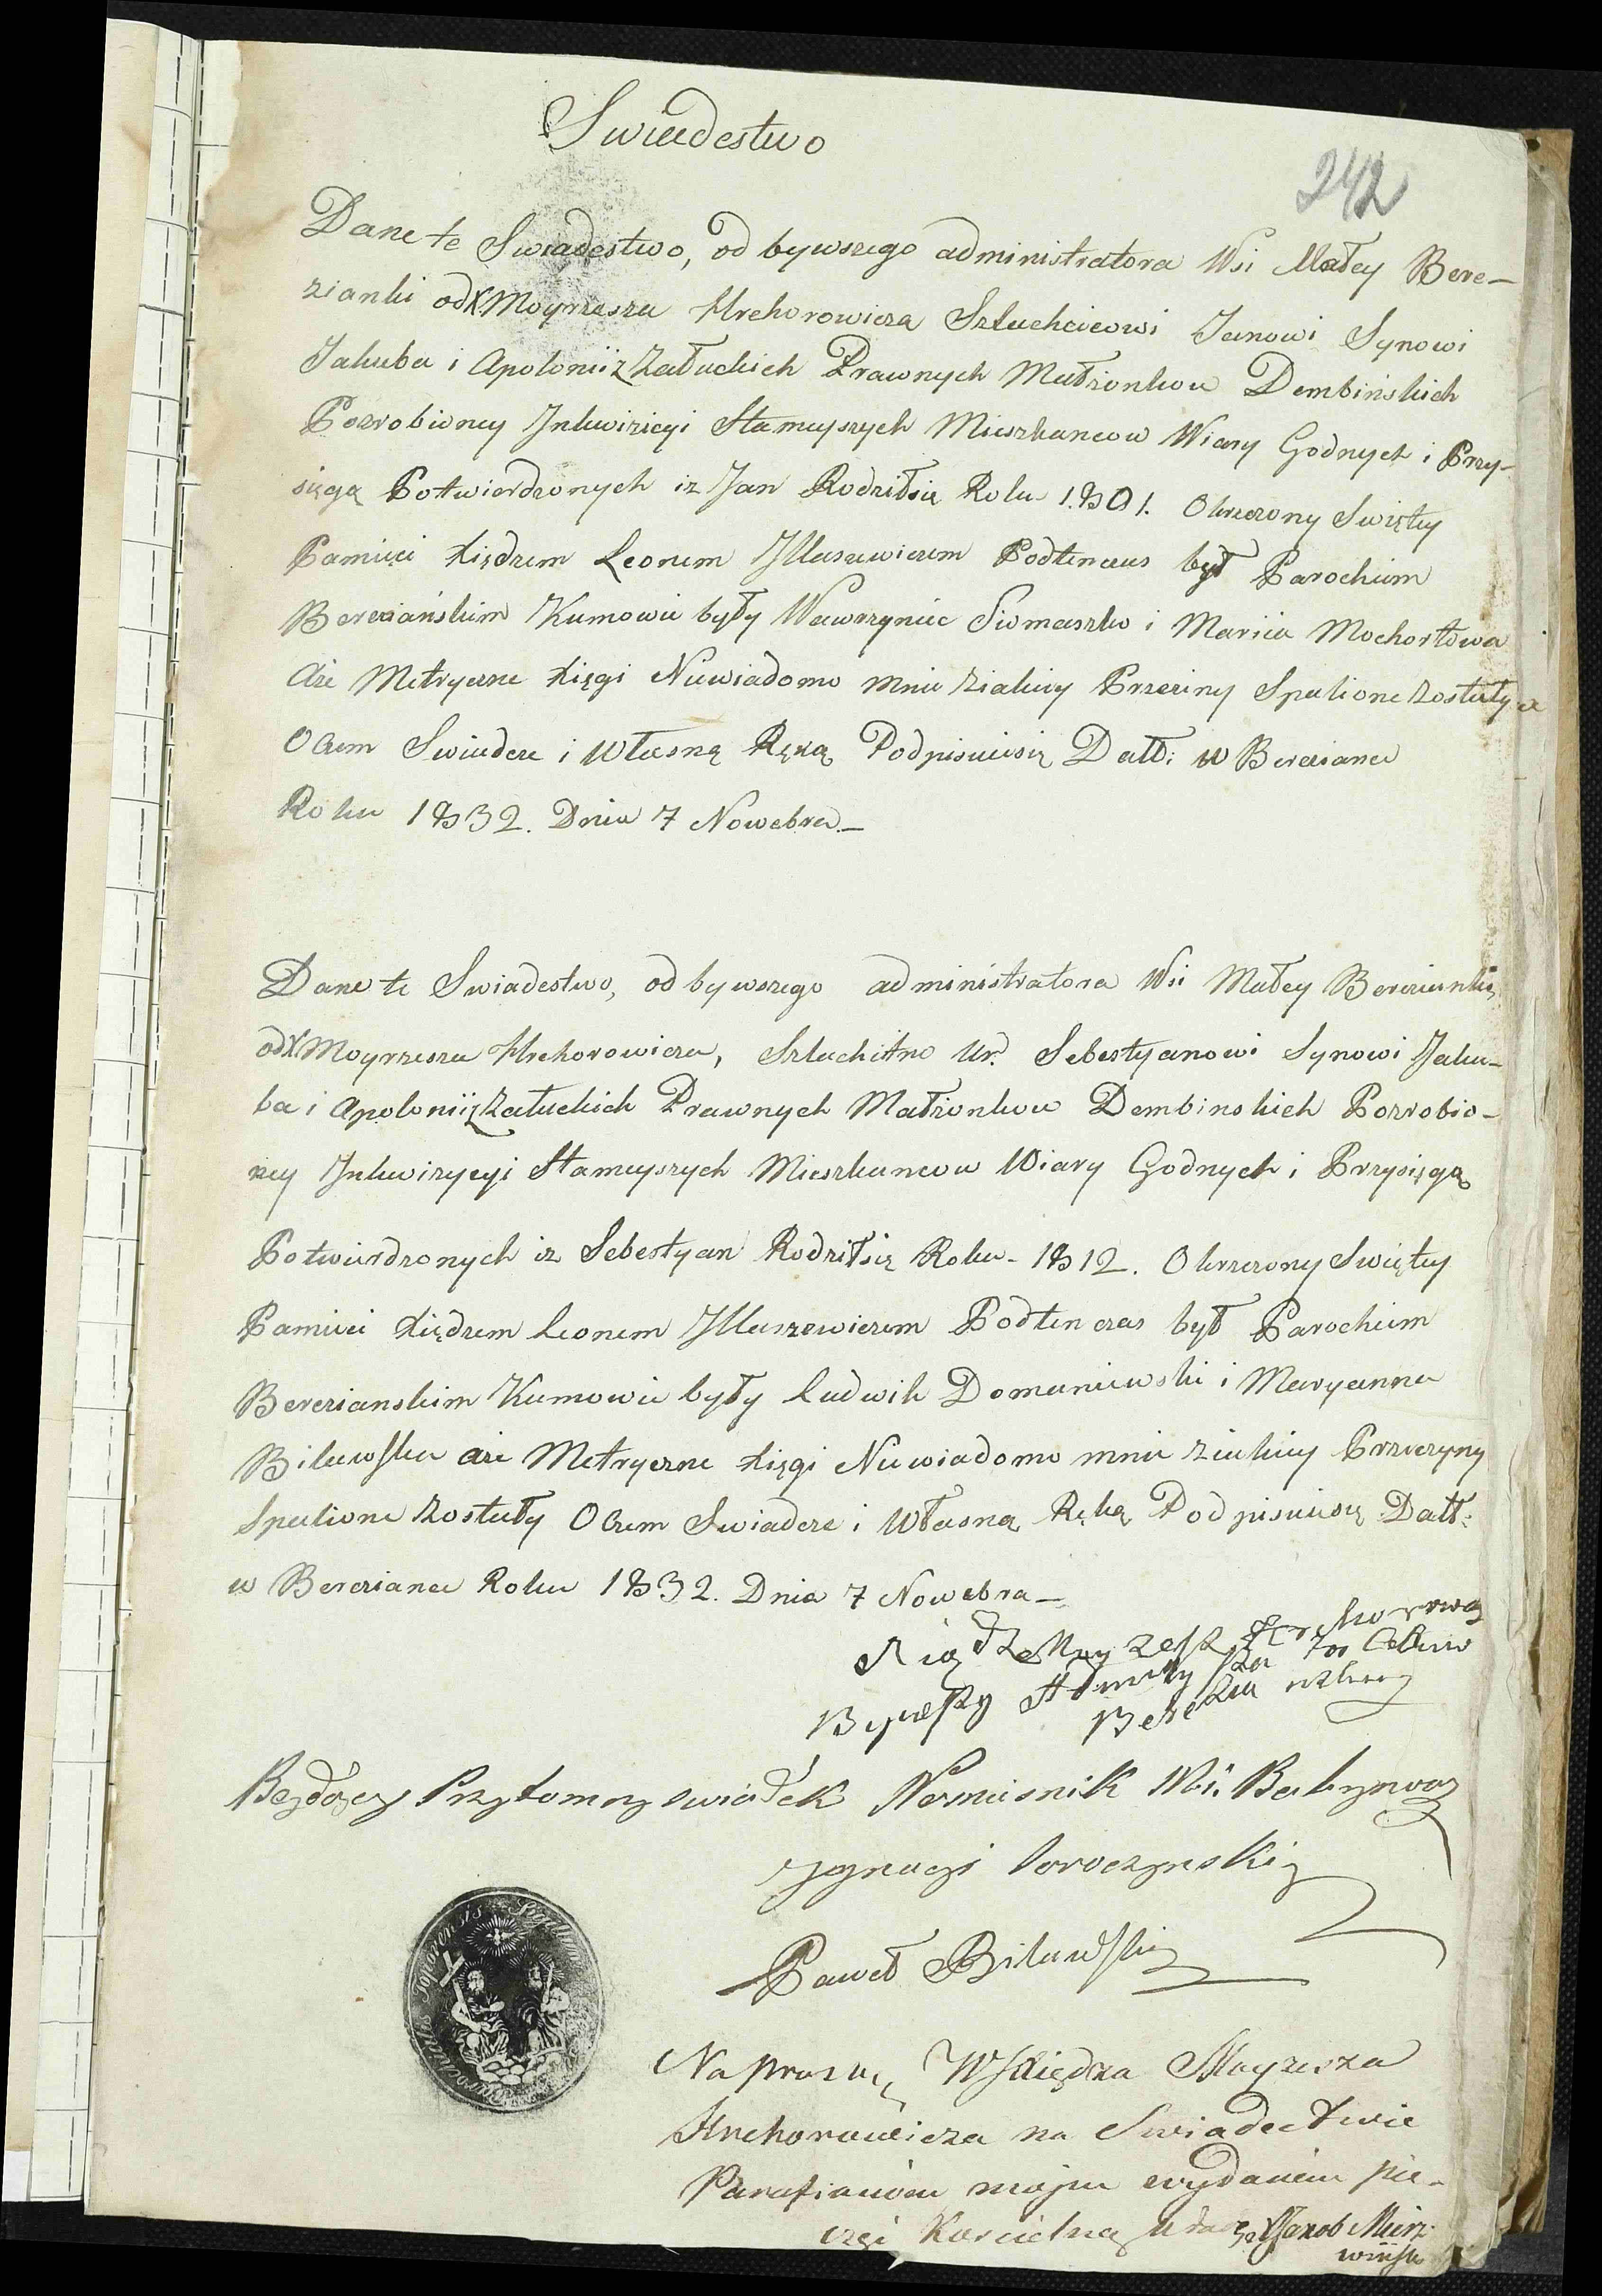 Swiadestwo
242
Dane te Swiadestwo, od bywszego administratora Wsi Małey Bere-
zianki od X Moyzesza Hrehorowicza Szlachcicowi Janowi Synowi
Jakuba i Apolonii z Załuckich Prawnych Małżonkow Dembińskich
Pozrobioney Inkwizicyi Starnuyszych Mieszkancow Wiary Godnych i Przy-
sięgą Potwierdzonych iz Jan Rodziłsię Roku 1801. Okrzczony Swiętey
Pamięci Xiędzem Leonem Illaszewiczem Podtenczas był Parochiim
Bereziańskim Kumowie były Wawrzyniec Siomaszko i Mariia Mochortowa
Aże Metryczne Xięgi Niewiadomo mnie ziakiey Przeziny Spalione zostały a
Oczem Swiadcze i Własną Ręką Podpisuiesię Datt: w Bereziance
Roku 1832. Dnia 7 Nowebra.-
Dane te Swiadestwo, od bywszego administratora Wsi Małey Berezianki,
od X Moyrzesza Hrehorowicza, Szlachitno Ur. Sebestyanowi Synowi Jaku-
ba i Apolonii z Załuckich Prawnych Małżonkow Dembinskich Pozrobio-
ney Inkwizycyi Starnuyszych Mieszkancow Wiary Godnych i Przysięgą
Potwierdzonych iz Sebestyan Rodziłsię Roku - 1812. Okrzczony Swiętey
Pamieci Xiędzem Leonem Illaszewiczem Podten czas był Parochiim
Berezianskim Kumowie były Ludwik Domaniewski i Maryanna
Bilewska aże Metryczne Xięgi Niewiadomo mnie ziakiey Przyczyny
Spalione zostały Oczem Swiadcze i Własną Ręką Podpisuiesię Datt:
w Bereziance Roku 1832. Dnia 7 Nowebra -
Xiądz
Bywszy
Będącey Przytomny swiadek Namiesnik Wsi
Ignacyi
Paweł Bilewski
Na prozbę W Xiędza Moyzesza
Hrehorowicza na Swiadectwie
Parafianom mojm wydanem pie-
częć Koscielną